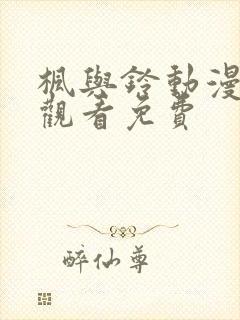 楓與鈴動漫
觀看免費
醉仙尊